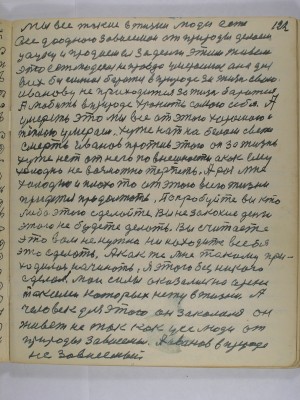 Мы все такие в жизни люди есть 182
Все до одного зависимые от природы делаем
науку и продаем За деньги этим живем
это есть людская неправда умирание она для
всех бы силами бороться в природе за жизнь свою
Иванову не приходится за жизнь бороться
А любить в природе хранить самого себя. А
умереть это мы все от этого хорошего и
теплого умерли. Хуже нет на белом свете
смерть Иванов против этого он за жизнь
хуже нет от него по внешности а как ему
холодно не возможно терпеть, А раз мне
холодно и плохо то от этого всего жизни
придется продолжать. Попробуйте вы кто
либо этого сделайте Вы ни за какие деньги
этого не будете делать. Вы считаете
это вам не нужно ни находить в себя
это сделать, А как же мне такому при-
ходилось начинать, я этого без никого
сделал. Мои силы оказались одни
такими которых нету в жизни А
человек для этого он закалялся он
живет не так как и все люди от
природы зависимы. А Иванов в природе
не зависимый